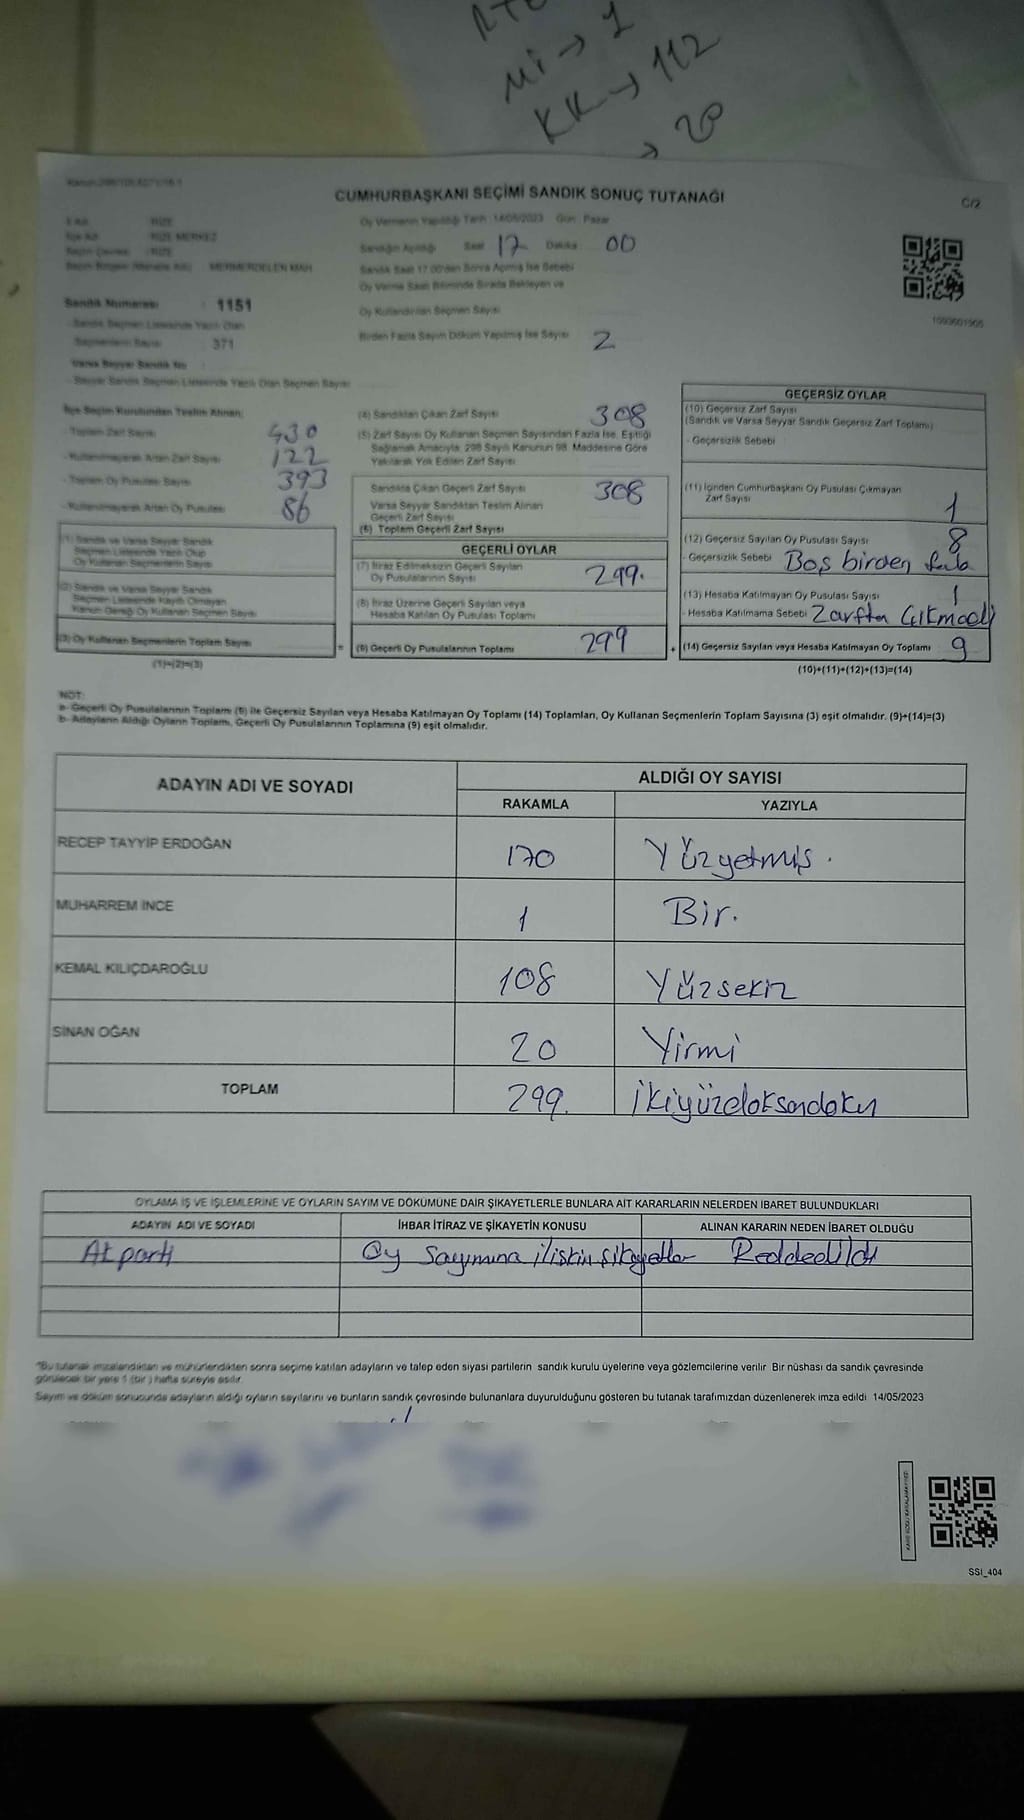 Mi → 1
KK → 112
→ 20
CUMHURBAŞKANI SEÇİMİ SANDIK SONUÇ TUTANAĞI
C/2
İl Adı : RİZE
İlçe Adı : RİZE MERKEZ
Seçim Çevresi : RİZE
Oy Vermenin Yapıldığı Tarih :14/05/2023 Gün : Pazar
Sandığın Açıldığı Saat 17 Dakika 00
Sandık Saat 17.00'den Sonra Açılmış İse Sebebi
Oy Verme Saati Bitiminde Sırada Bekleyen ve
Oy Kullandırılan Seçmen Sayısı
Birden Fazla Sayım Döküm Yapılmış İse Sayısı 2
Sandık Numarası : 1151
- Sandık Seçmen Listesinde Yazılı Olan
Seçmenlerin Sayısı : 371
Varsa Seyyar Sandık No :
- Seyyar Sandık Seçmen Listesinde Yazılı Olan Seçmen Sayısı
İlçe Seçim Kurulundan Teslim Alınan;
- Toplam Zarf Sayısı 430
- Kullanılmayarak Artan Zarf Sayısı 122
- Toplam Oy Pusulası Sayısı 393
- Kullanılmayarak Artan Oy Pusulası 86
(1) Sandık ve Varsa Seyyar Sandık
Seçmen Listesinde Yazılı Olup
Oy Kullanan Seçmenlerin Sayısı
(2) Sandık ve Varsa Seyyar Sandık
Seçmen Listesinde Kayıtlı Olmayan
Kanun Gereği Oy Kullanan Seçmen Sayısı
(3) Oy Kullanan Seçmenlerin Toplam Sayısı
(1)+(2)=(3)
(4) Sandıktan Çıkan Zarf Sayısı 308
(5) Zarf Sayısı Oy Kullanan Seçmen Sayısından Fazla İse, Eşitliği
Sağlamak Amacıyla, 298 Sayılı Kanunun 98. Maddesine Göre
Yakılarak Yok Edilen Zarf Sayısı
Sandıkta Çıkan Geçerli Zarf Sayısı 308
Varsa Seyyar Sandıktan Teslim Alınan
Geçerli Zarf Sayısı
(6) Toplam Geçerli Zarf Sayısı
GEÇERLİ OYLAR
(7) İtiraz Edilmeksizin Geçerli Sayılan
Oy Pusulalarının Sayısı 299.
(8) İtiraz Üzerine Geçerli Sayılan veya
Hesaba Katılan Oy Pusulası Toplamı
= (9) Geçerli Oy Pusulalarının Toplamı 299
GEÇERSİZ OYLAR
(10) Geçersiz Zarf Sayısı
(Sandık ve Varsa Seyyar Sandık Geçersiz Zarf Toplamı)
- Geçersizlik Sebebi
(11) İçinden Cumhurbaşkanı Oy Pusulası Çıkmayan
Zarf Sayısı 1
(12) Geçersiz Sayılan Oy Pusulası Sayısı 8
- Geçersizlik Sebebi Boş birden fazla
(13) Hesaba Katılmayan Oy Pusulası Sayısı 1
- Hesaba Katılmama Sebebi Zarftan Çıkmadı
+ (14) Geçersiz Sayılan veya Hesaba Katılmayan Oy Toplamı 9
(10)+(11)+(12)+(13)=(14)
NOT:
a- Geçerli Oy Pusulalarının Toplamı (9) ile Geçersiz Sayılan veya Hesaba Katılmayan Oy Toplamı (14) Toplamları, Oy Kullanan Seçmenlerin Toplam Sayısına (3) eşit olmalıdır. (9)+(14)=(3)
b- Adayların Aldığı Oyların Toplamı, Geçerli Oy Pusulalarının Toplamına (9) eşit olmalıdır.
ADAYIN ADI VE SOYADI
ALDIĞI OY SAYISI
RAKAMLA YAZIYLA
RECEP TAYYİP ERDOĞAN 170 Yüzyetmiş.
MUHARREM İNCE 1 Bir.
KEMAL KILIÇDAROĞLU 108 Yüzsekiz
SİNAN OĞAN 20 Yirmi
TOPLAM 299. İkiyüzdoksandokuz
OYLAMA İŞ VE İŞLEMLERİNE VE OYLARIN SAYIM VE DÖKÜMÜNE DAİR ŞİKAYETLERLE BUNLARA AİT KARARLARIN NELERDEN İBARET BULUNDUKLARI
ADAYIN ADI VE SOYADI İHBAR İTİRAZ VE ŞİKAYETİN KONUSU ALINAN KARARIN NEDEN İBARET OLDUĞU
Ak parti Oy Sayımına ilişkin şikayetler Reddedildi
*Bu tutanak imzalandıktan ve mühürlendikten sonra seçime katılan adayların ve talep eden siyasi partilerin sandık kurulu üyelerine veya gözlemcilerine verilir. Bir nüshası da sandık çevresinde
görülecek bir yere 1 (bir) hafta süreyle asılır.
Sayım ve döküm sonucunda adayların aldığı oyların sayılarını ve bunların sandık çevresinde bulunanlara duyurulduğunu gösteren bu tutanak tarafımızdan düzenlenerek imza edildi 14/05/2023
SSİ_404